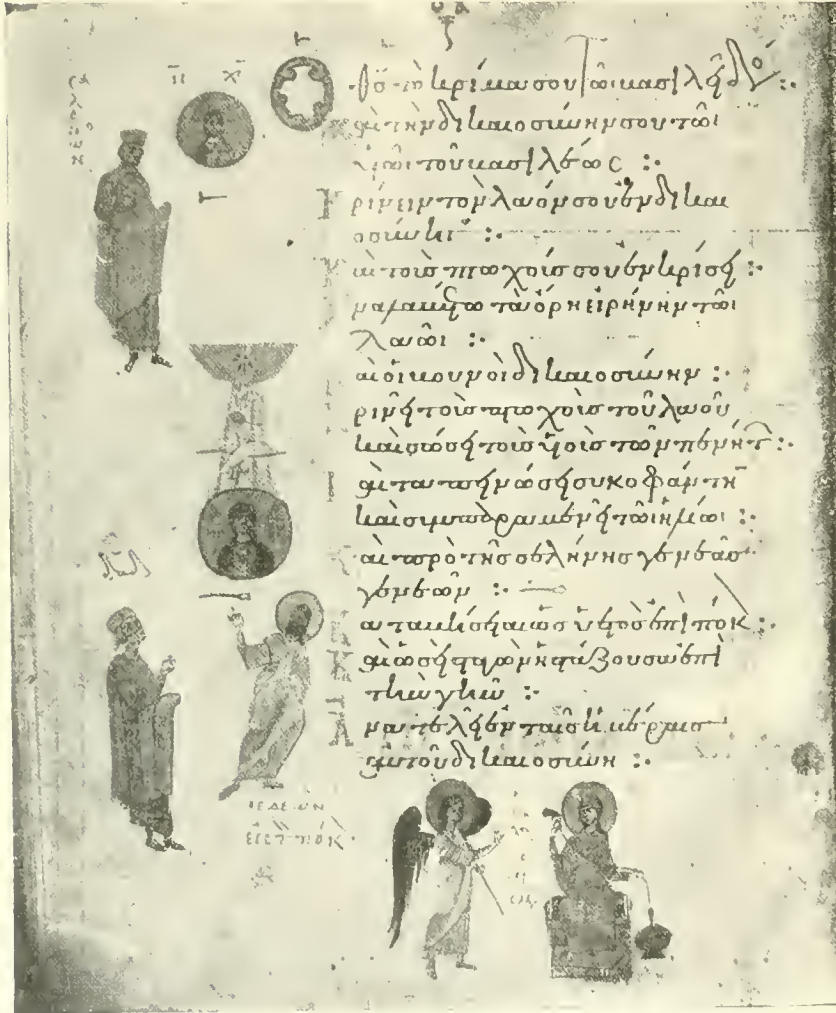 ΟΑ
ὁ θ̅ς̅ τὸ κρίμα σου τῶι βασιλεῖ δός :·
καὶ τὴν δικαιοσύνην σου τῶι
υ̅ῶι τοῦ βασιλέως :·
Κρίνειν τὸν λαόν σου ἐν δικαι
οσύνηι :·
Καὶ τοὺς πτωχούς σου ἐν κρίσει :·
ἀναλαβέτω τὰ ὄρη εἰρήνην τῶι
λαῶι :·
καὶ οἱ βουνοὶ δικαιοσύνην :·
Κρινεῖ τοὺς πτωχοὺς τοῦ λαοῦ
καὶ σώσει τοὺς υ̅οὺς τῶν πενήτ :·
καὶ ταπεινώσει συκοφάντη̅
καὶ συμπαραμενεῖ τῶι ἡλίωι :·
Καὶ πρὸ τῆς σελήνης γενεὰς
γενεῶν :·
Καταβήσεται ὡς ὑετὸς ἐπὶ πόκ :·
Καὶ ὡσεὶ σταγὼν ἡ στάζουσα ἐπὶ
τὴν γῆν :·
Ἀνατελεῖ ἐν ταῖς ἡμέραις
αὐτοῦ δικαιοσύνη :·
ΓΕΔΕΩΝ